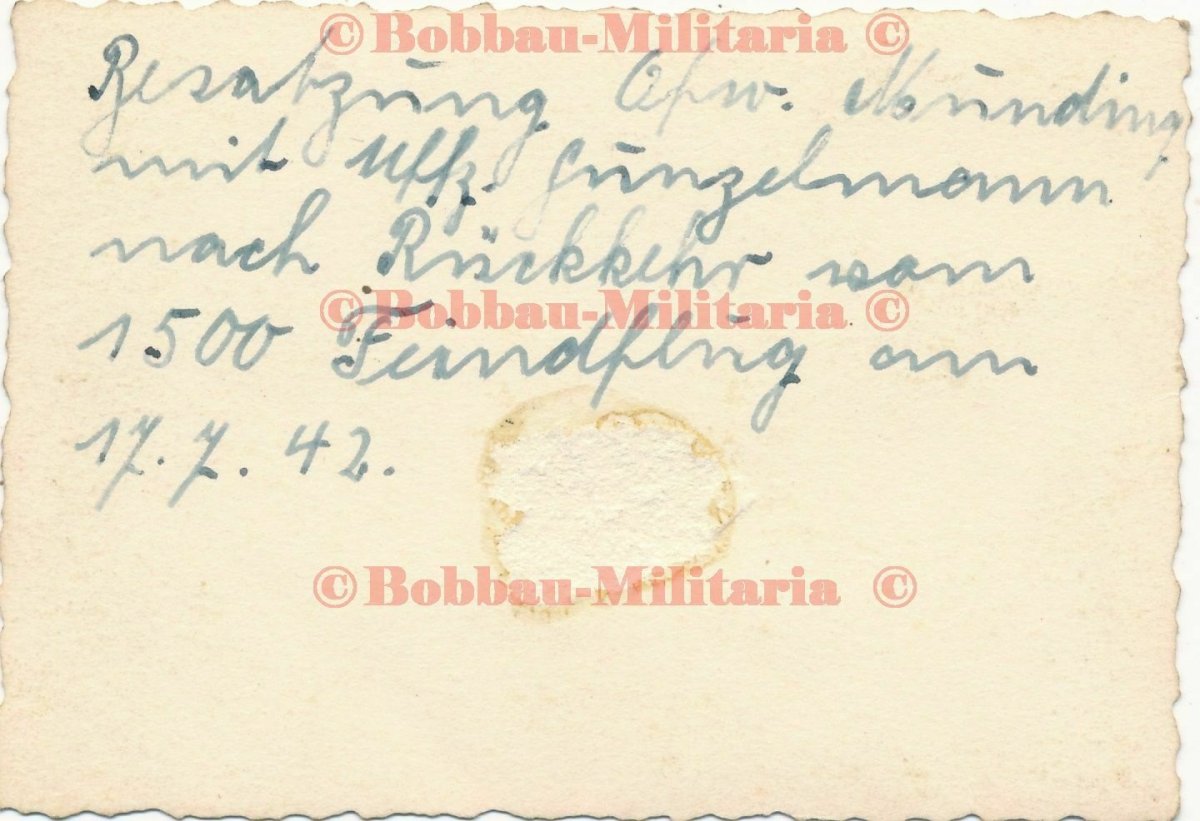 © Bobbau-Militaria ©
Besatzung Ofw. Munding
mit Uffz. Gunzelmann
nach Rückkehr vom
© Bobbau-Militaria ©
1500 Feindflug am
17.7.42.
© Bobbau-Militaria ©